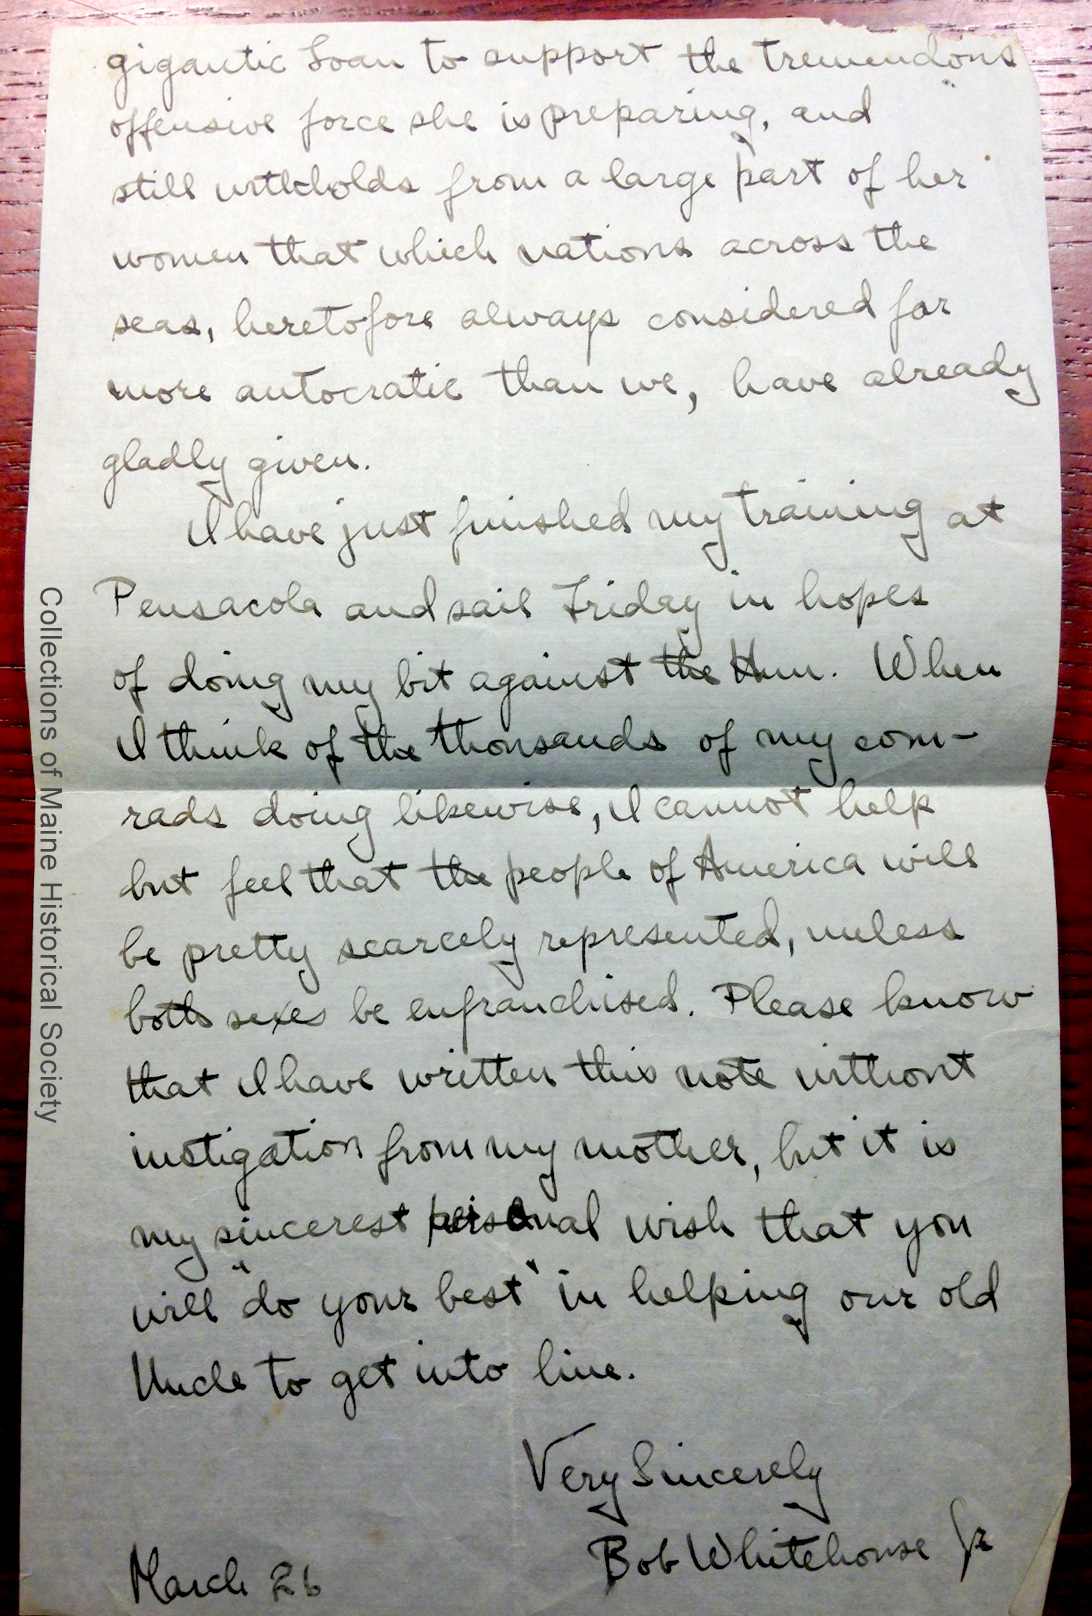 gigantic Loan to support the tremendous
offensive force she is preparing, and
still witholds from a large part of her
women that which nations across the
seas, heretofore always considered far
more autocratic than we, have already
gladly given.
I have just finished my training at
Pensacola and sail Friday in hopes
of doing my bit against the Hun. When
I think of the thousands of my com-
rads doing likewise, I cannot help
but feel that the people of America will
be pretty scarcely represented, unless
both sexes be enfranchised. Please know
that I have written this note without
instigation from my mother, but it is
my sincerest personal wish that you
will "do your best" in helping our old
Uncle to get into line.
Very Sincerely
Bob Whitehouse Jr
March 26
Collections of Maine Historical Society